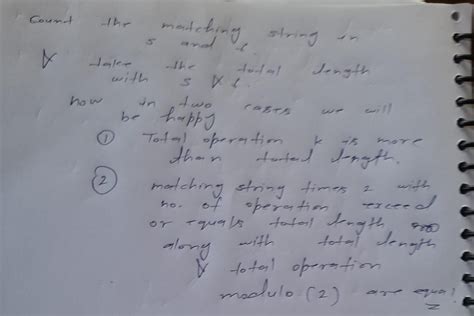 Count the matching string in
s and t
& take the total length
with s & t.
now in two cases we will
be happy
① Total operation k is more
than total length.
② matching string times 2 with
no. of operation exceed
or equals total length
along with total length
& total operation
modulo (2) are equal